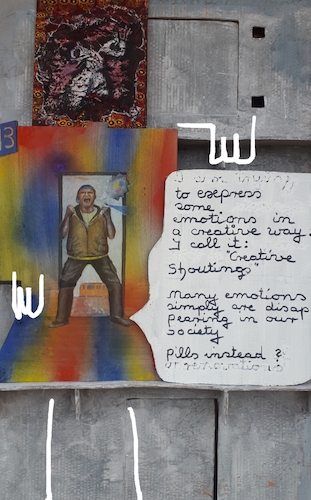 13
to exepress
some
emotions in
a creative way.
I call it:
"Creative
Shoutings"
Many emotions
simply are disap
pearing in our
society
pills instead ?